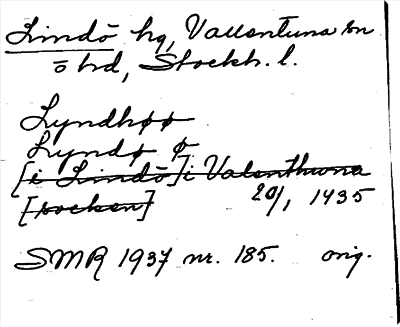 Lindö hg, Vallentuna sn
ö hd, Stockh. l.
Lyndhøø
Lyndø ø
[i Lindö] i Valenthwna
[socken] 20/1 1435
SMR 1937 nr. 185. orig.